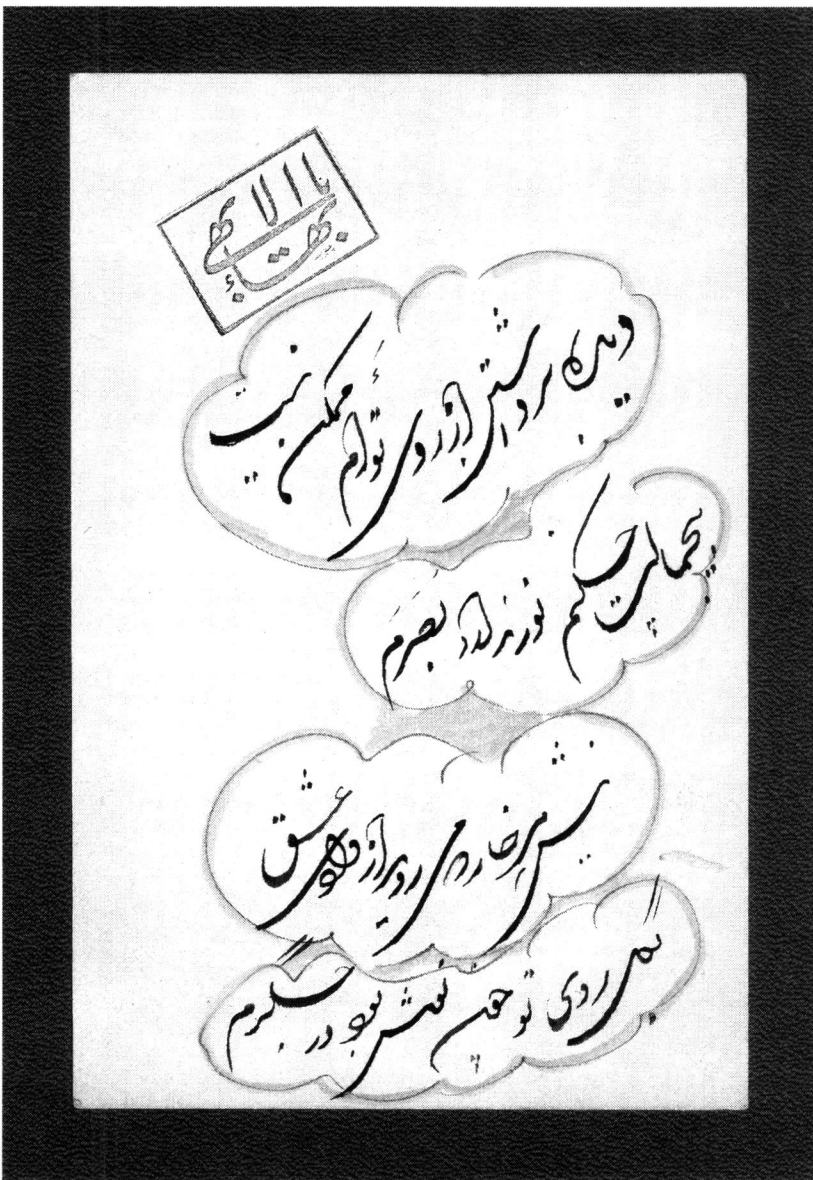 یا بهاءالابهی
دیده برداشتن از روی توأم ممکن نیست
بجمالت چکنم نور ندارد بصرم
نیش هر خار می روید از وادی عشق
بگل روی تو چون نقش بود در جگرم